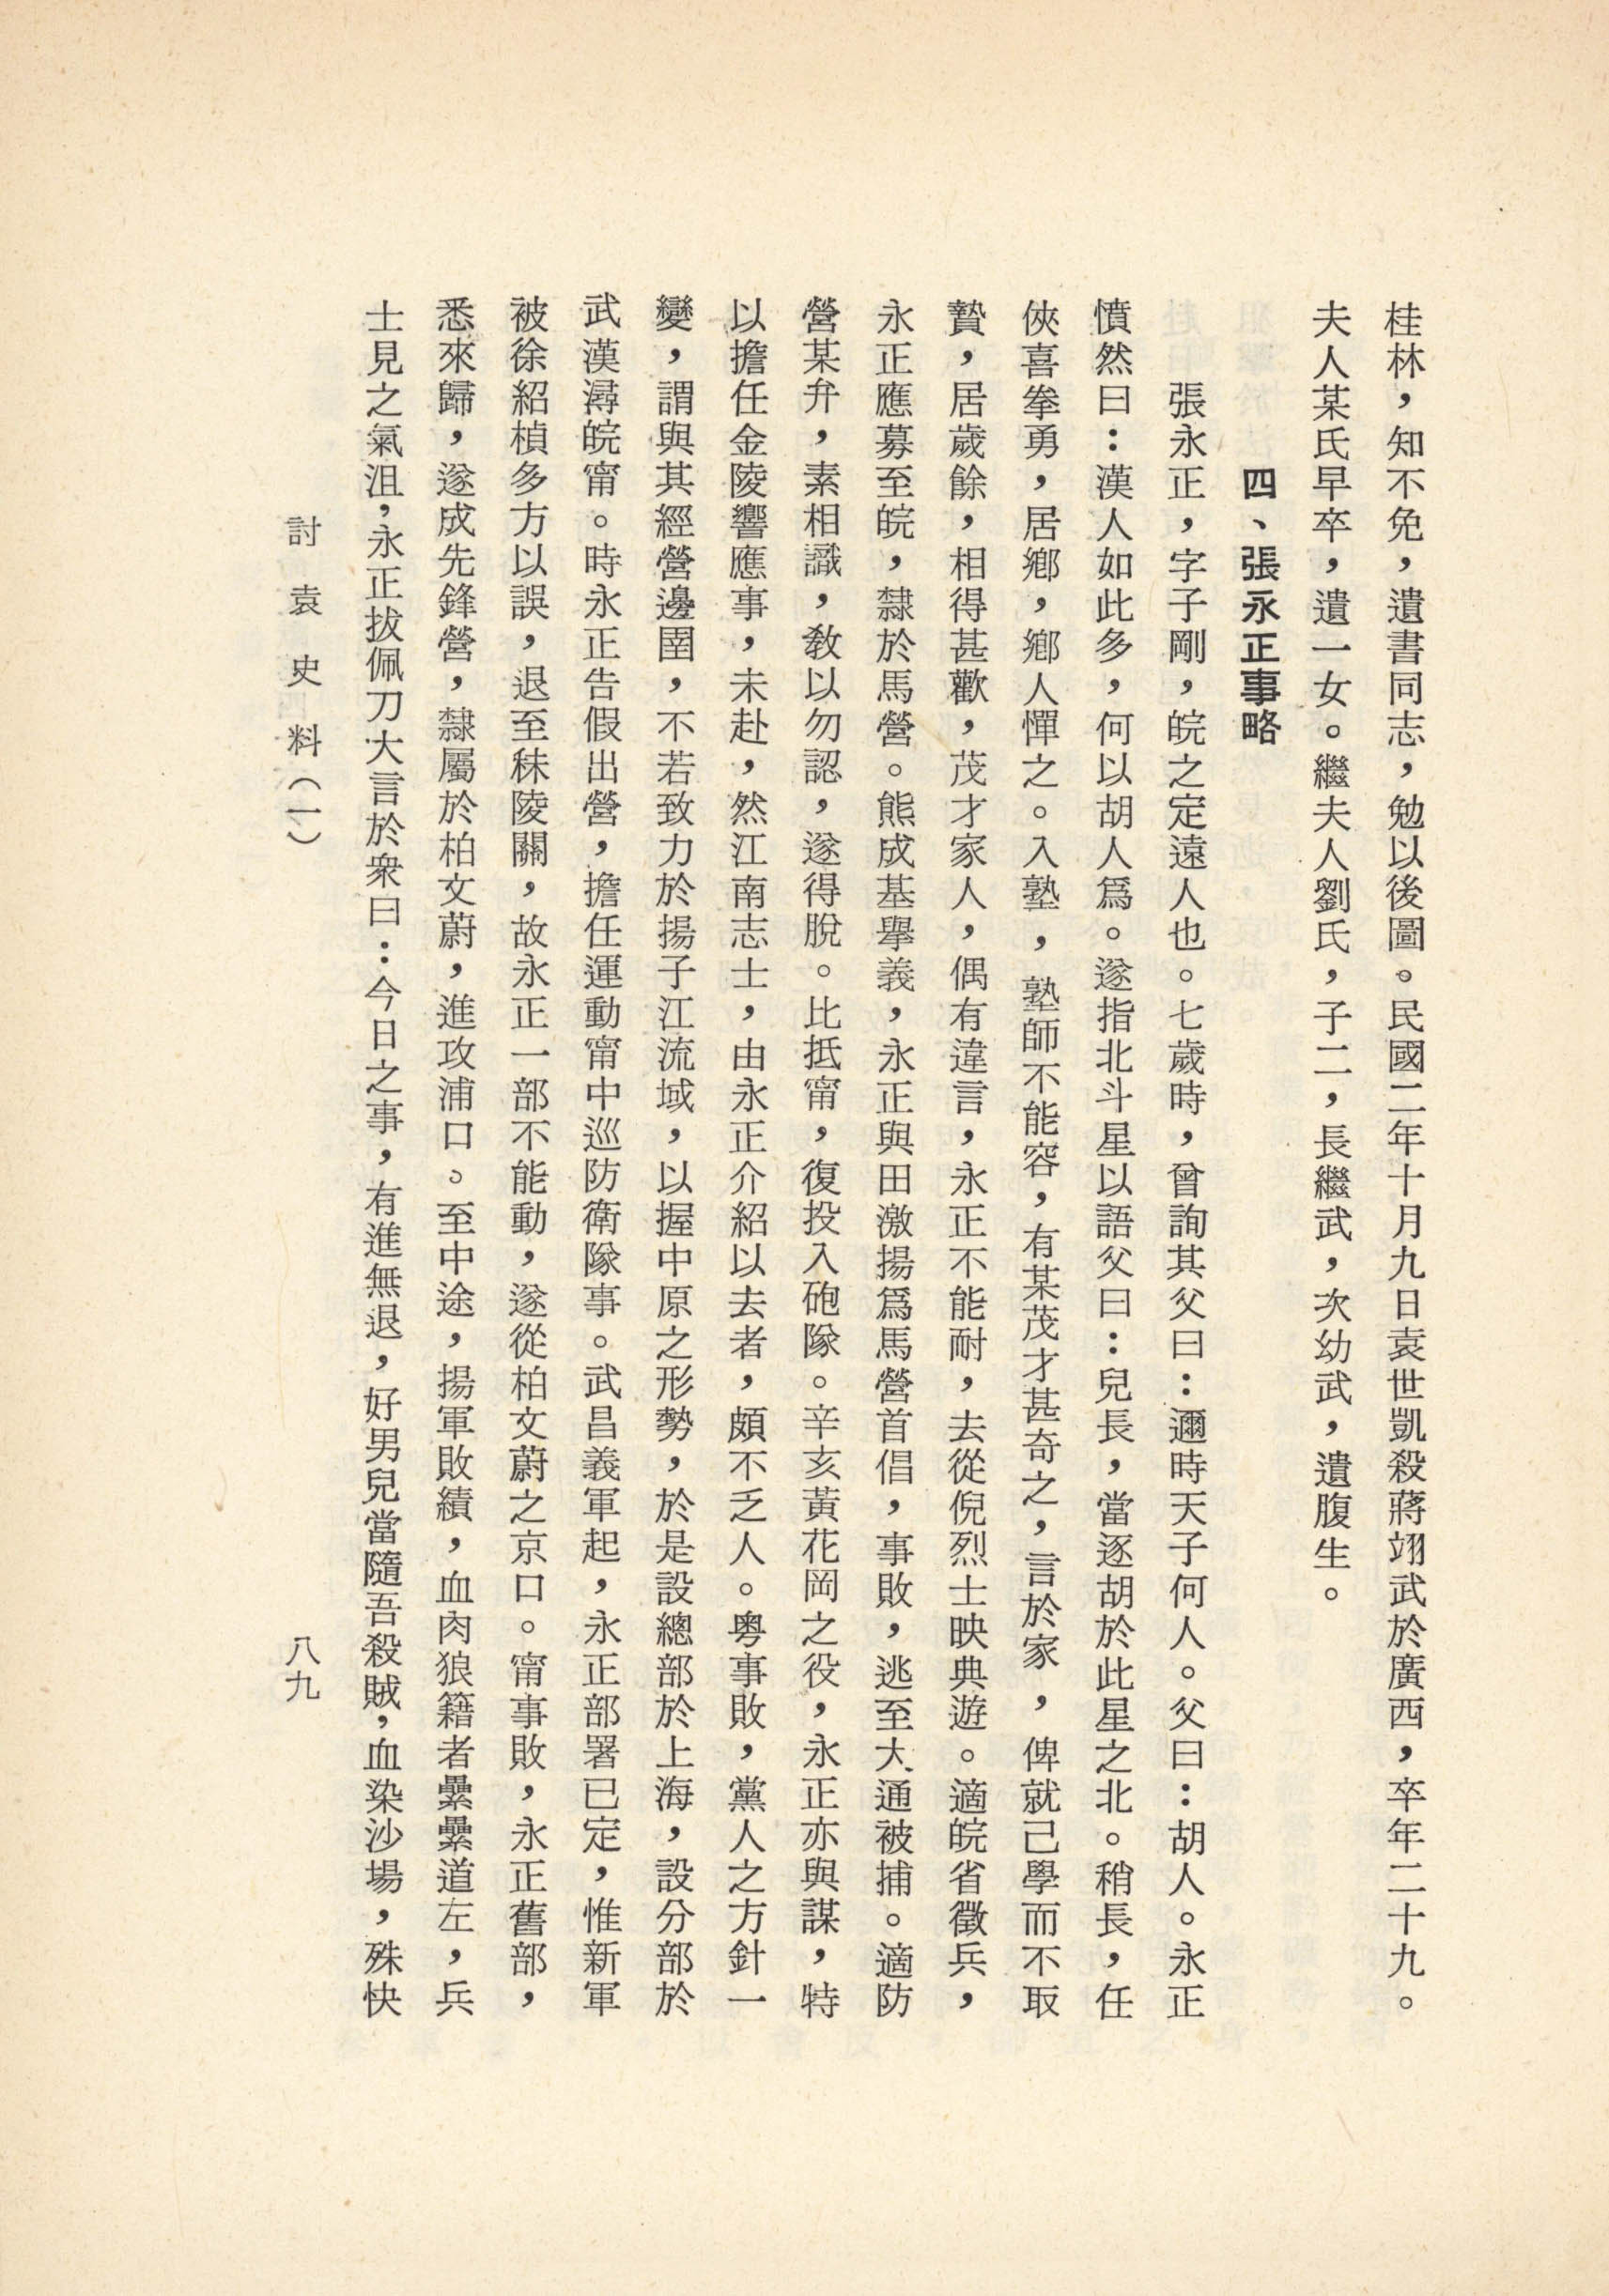 桂林，知不免，遺書同志，勉以後圖。民國二年十月九日袁世凱殺蔣翊武於廣西，卒年二十九。
夫人某氏早卒，遺一女。繼夫人劉氏，子二，長繼武，次幼武，遺腹生。
四、張永正事略
張永正，字子剛，皖之定遠人也。七歲時，曾詢其父曰：邇時天子何人。父曰：胡人。永正
憤然曰：漢人如此多，何以胡人爲。遂指北斗星以語父曰：兒長，當逐胡於此星之北。稍長，任
俠喜拳勇，居鄕，鄕人憚之。入塾，塾師不能容，有某茂才甚奇之，言於家，俾就己學而不取
贄，居歲餘，相得甚歡，茂才家人，偶有違言，永正不能耐，去從倪烈士映典遊。適皖省徵兵，
永正應募至皖，隸於馬營。熊成基舉義，永正與田激揚爲馬營首倡，事敗，逃至大通被捕。適防
營某弁，素相識，敎以勿認，遂得脫。比抵甯，復投入砲隊。辛亥黃花岡之役，永正亦與謀，特
以擔任金陵響應事，未赴，然江南志士，由永正介紹以去者，頗不乏人。粵事敗，黨人之方針一
變，謂與其經營邊圉，不若致力於揚子江流域，以握中原之形勢，於是設總部於上海，設分部於
武漢潯皖甯。時永正告假出營，擔任運動甯中巡防衛隊事。武昌義軍起，永正部署已定，惟新軍
被徐紹楨多方以誤，退至秣陵關，故永正一部不能動，遂從柏文蔚之京口。甯事敗，永正舊部，
悉來歸，遂成先鋒營，隸屬於柏文蔚，進攻浦口。至中途，揚軍敗績，血肉狼籍者纍纍道左，兵
士見之氣沮，永正拔佩刀大言於衆曰：今日之事，有進無退，好男兒當隨吾殺賊，血染沙場，殊快
討袁史料（一）
八九